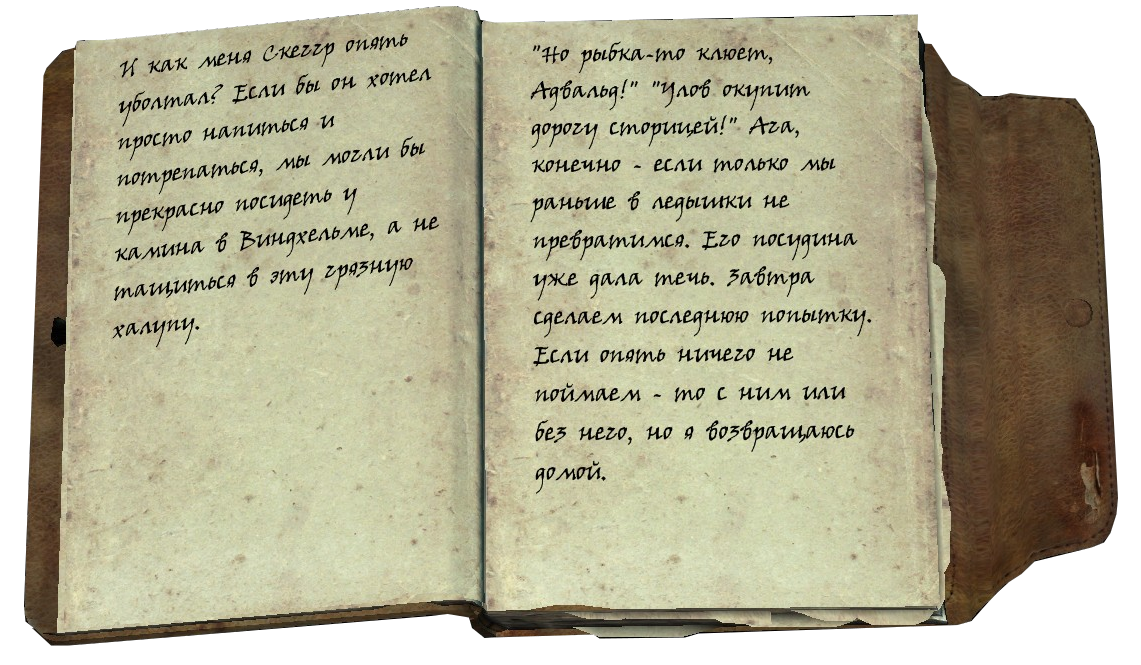 И как меня Скеггр опять
уболтал? Если бы он хотел
просто напиться и
потрепаться, мы могли бы
прекрасно посидеть у
камина в Виндхельме, а не
тащиться в эту грязную
халупу.
"Но рыбка-то клюет,
Адвальд!" "Улов окупит
дорогу сторицей!" Ага,
конечно - если только мы
раньше в ледышки не
превратимся. Его посудина
уже дала течь. Завтра
сделаем последнюю попытку.
Если опять ничего не
поймаем - то с ним или
без него, но я возвращаюсь
домой.